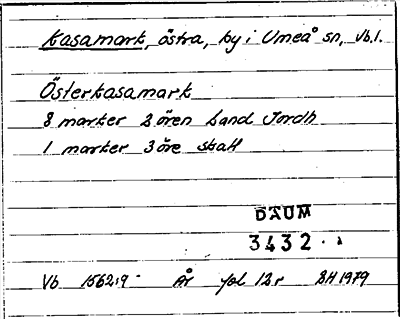 Kasamark, östra, by i Umeå sn, Vb.l.
Österkasamark
8 marker 2 ören Land Jordh
1 marker 3 öre skatt
DAUM
3432.
Vb 1562:9 År fol 12r BH 1979